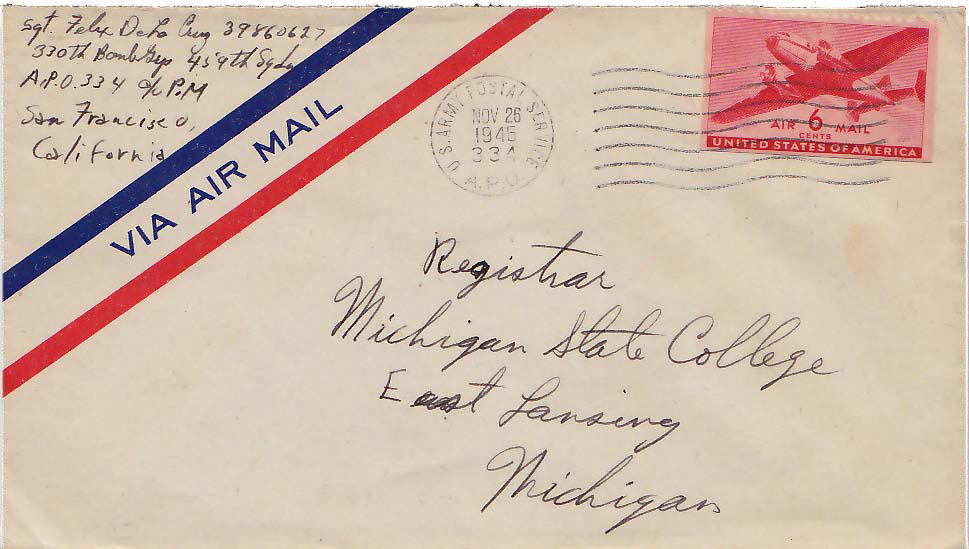 Sgt. Felix De La Cruz 39860627
330th Bomb Grp 459th Sqdn
A.P.O. 334 c/o P.M
San Francisco,
California
VIA AIR MAIL
U.S. ARMY POSTAL SERVICE
NOV 26
1945
334
A.P.O.
AIR 6 MAIL
CENTS
UNITED STATES OF AMERICA
Registrar
Michigan State College
East Lansing
Michigan